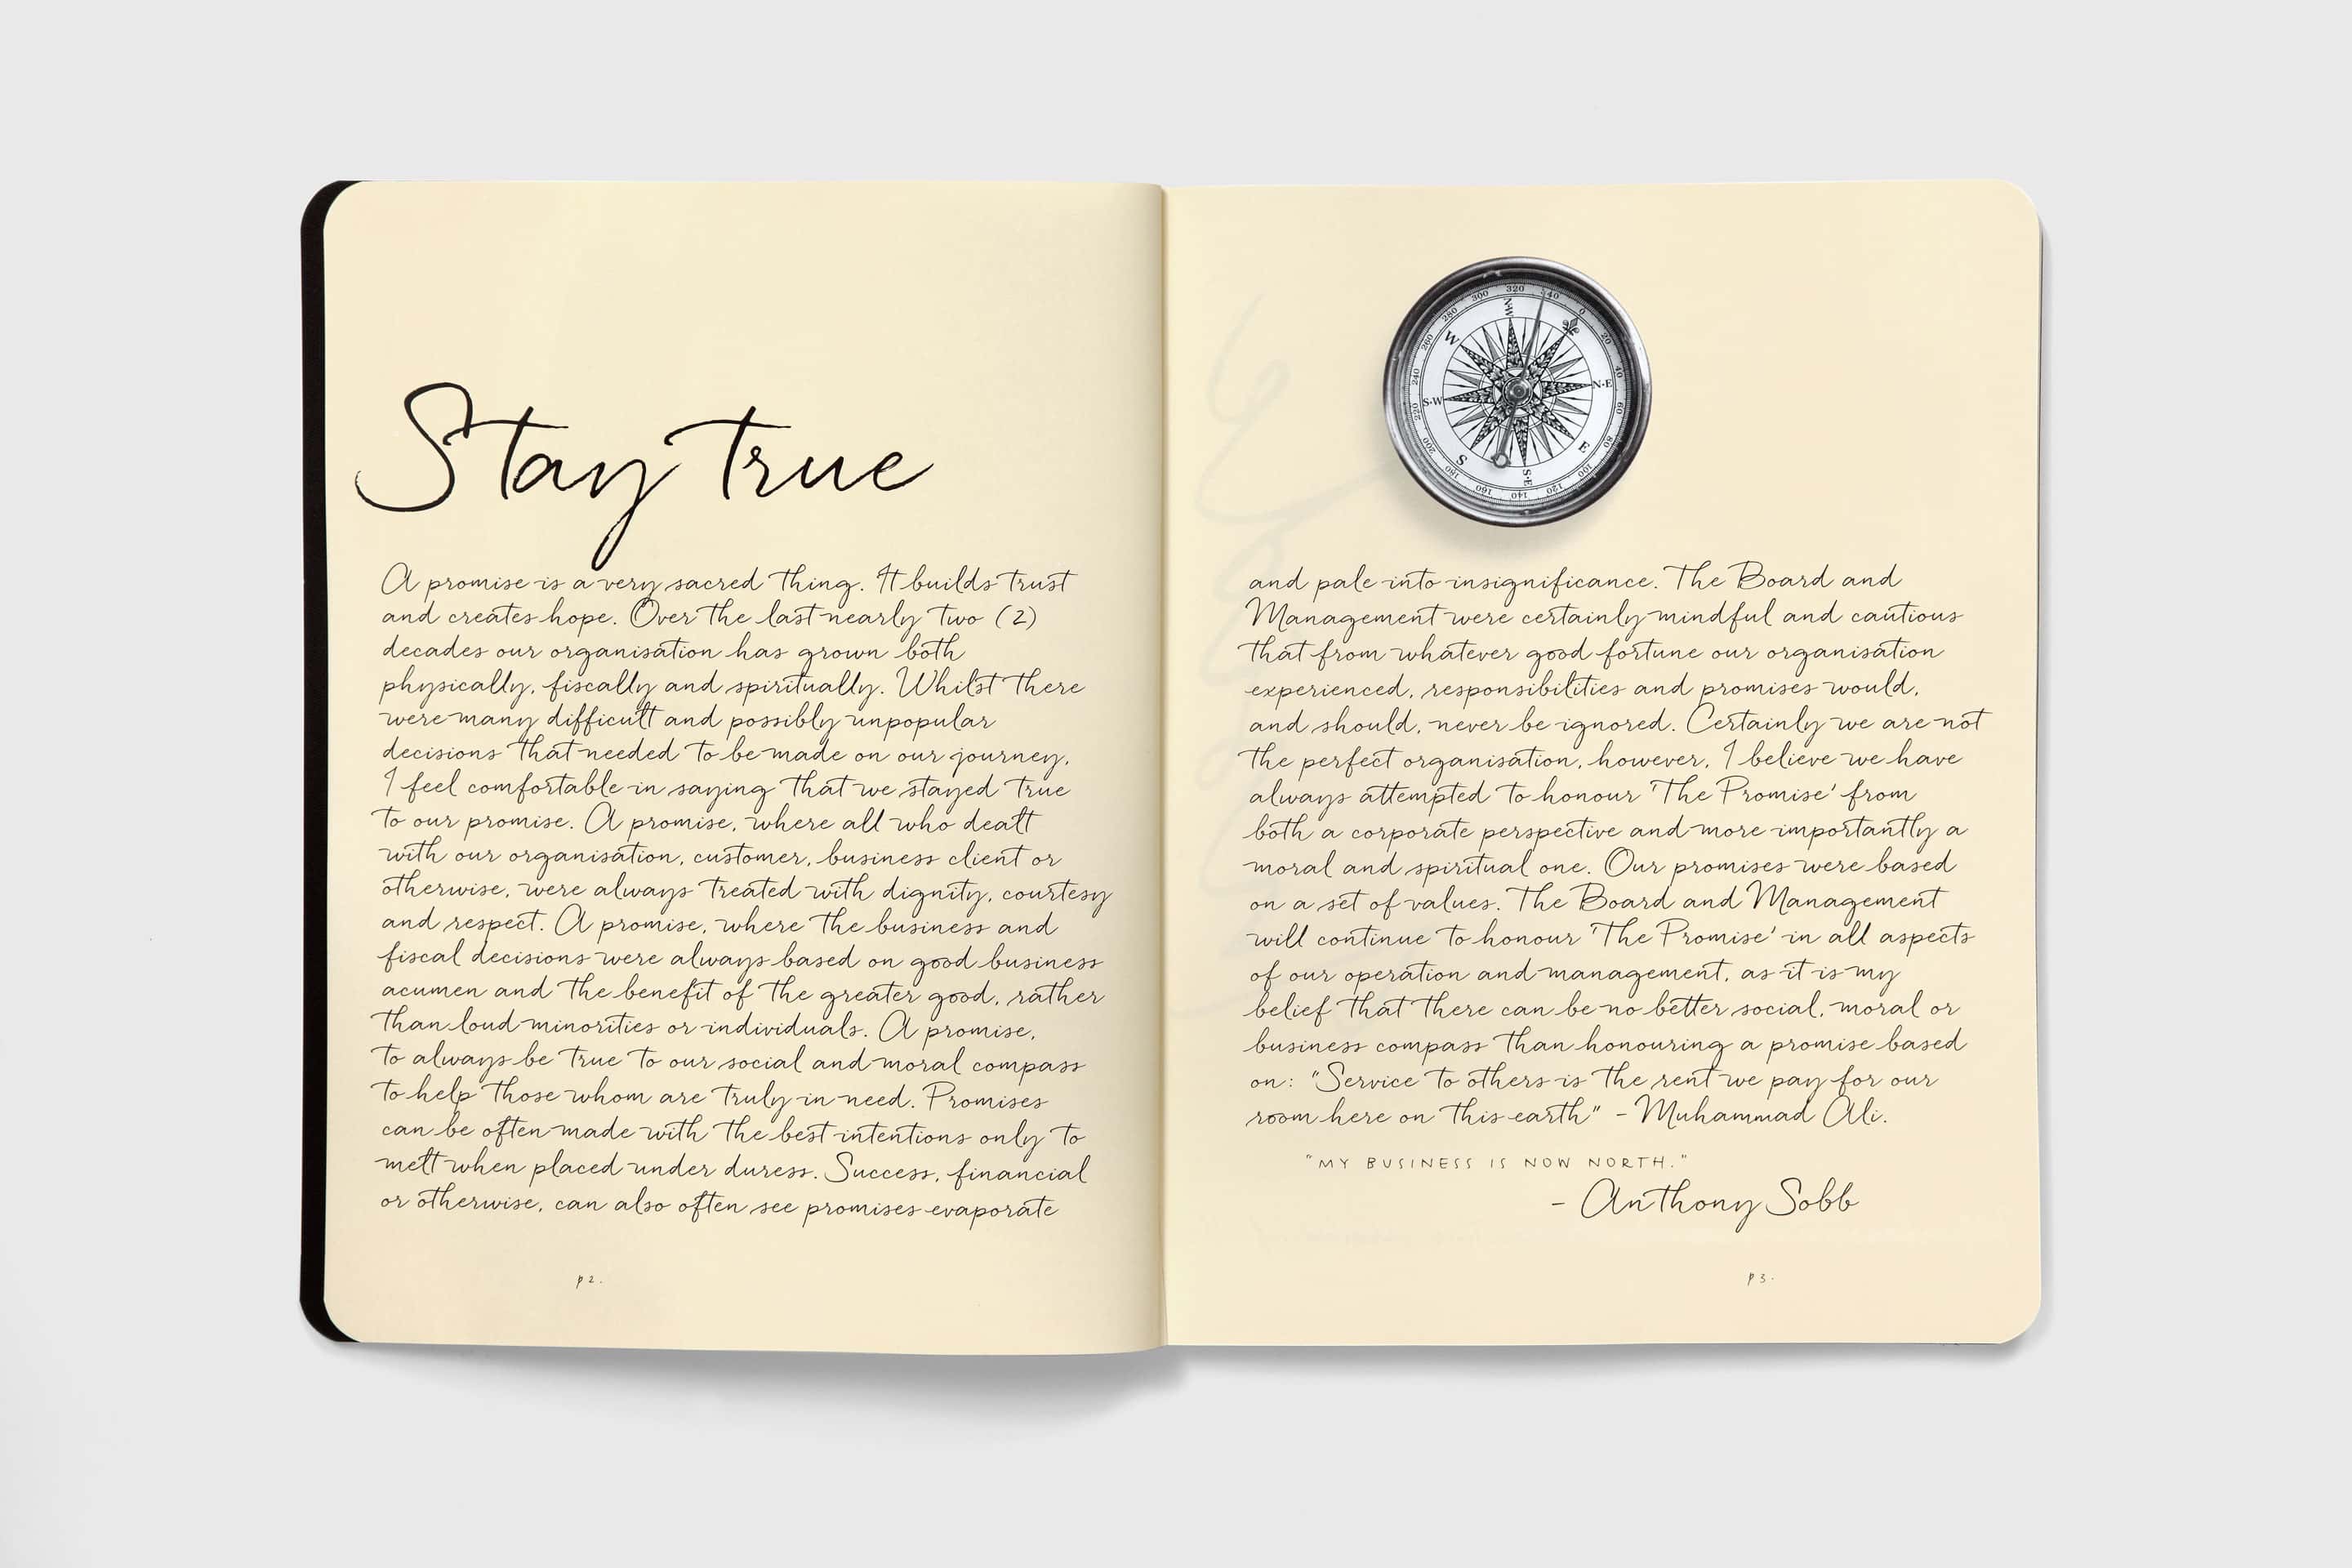 Stay true
A promise is a very sacred thing. It builds trust
and creates hope. Over the last nearly two (2)
decades our organisation has grown both
physically, fiscally and spiritually. Whilst there
were many difficult and possibly unpopular
decisions that needed to be made on our journey,
I feel comfortable in saying that we stayed true
to our promise. A promise, where all who dealt
with our organisation, customer, business client or
otherwise, were always treated with dignity, courtesy
and respect. A promise, where the business and
fiscal decisions were always based on good business
acumen and the benefit of the greater good, rather
than loud minorities or individuals. A promise,
to always be true to our social and moral compass
to help those whom are truly in need. Promises
can be often made with the best intentions only to
melt when placed under duress. Success, financial
or otherwise, can also often see promises evaporate
p2.
N-W
N-E
E
S-E
S
S-W
W
0
20
40
60
80
100
120
140
160
180
200
220
240
260
280
300
320
340
and pale into insignificance. The Board and
Management were certainly mindful and cautious
that from whatever good fortune our organisation
experienced, responsibilities and promises would,
and should, never be ignored. Certainly we are not
the perfect organisation, however, I believe we have
always attempted to honour 'The Promise' from
both a corporate perspective and more importantly a
moral and spiritual one. Our promises were based
on a set of values. The Board and Management
will continue to honour 'The Promise' in all aspects
of our operation and management, as it is my
belief that there can be no better social, moral or
business compass than honouring a promise based
on: "Service to others is the rent we pay for our
room here on this earth" - Muhammad Ali.
"MY BUSINESS IS NOW NORTH."
- Anthony Sobb
p3.